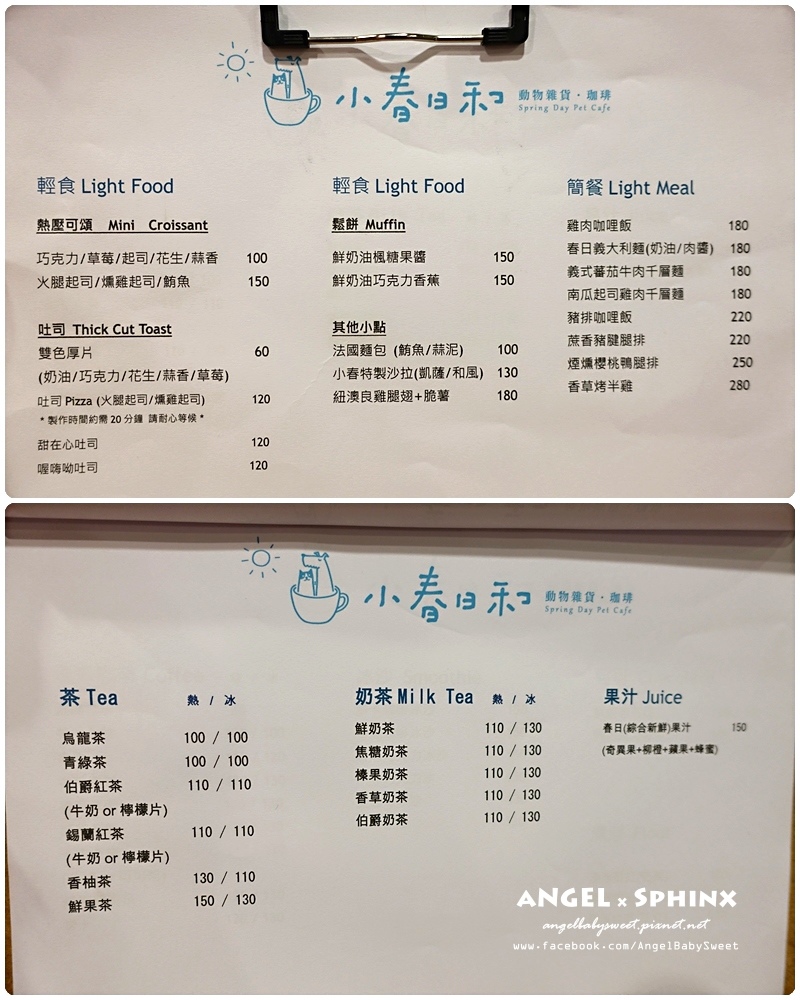 小春日和 動物雜貨・珈琲
Spring Day Pet Cafe
輕食 Light Food
熱壓可頌 Mini Croissant
巧克力/草莓/起司/花生/蒜香 100
火腿起司/燻雞起司/鮪魚 150
吐司 Thick Cut Toast
雙色厚片 60
(奶油/巧克力/花生/蒜香/草莓)
吐司 Pizza (火腿起司/燻雞起司) 120
*製作時間約需 20 分鐘 請耐心等候*
甜在心吐司 120
喔嗨呦吐司 120
輕食 Light Food
鬆餅 Muffin
鮮奶油楓糖果醬 150
鮮奶油巧克力香蕉 150
其他小點
法國麵包 (鮪魚/蒜泥) 100
小春特製沙拉(凱薩/和風) 130
紐澳良雞腿翅+脆薯 180
簡餐 Light Meal
雞肉咖哩飯 180
春日義大利麵(奶油/肉醬) 180
義式蕃茄牛肉千層麵 180
南瓜起司雞肉千層麵 180
豬排咖哩飯 220
蔗香豬腱腿排 220
煙燻櫻桃鴨腿排 250
香草烤半雞 280
小春日和 動物雜貨・珈琲
Spring Day Pet Cafe
茶 Tea 熱 / 冰
烏龍茶 100 / 100
青綠茶 100 / 100
伯爵紅茶 110 / 110
(牛奶 or 檸檬片)
錫蘭紅茶 110 / 110
(牛奶 or 檸檬片)
香柚茶 130 / 110
鮮果茶 150 / 130
奶茶 Milk Tea 熱 / 冰
鮮奶茶 110 / 130
焦糖奶茶 110 / 130
榛果奶茶 110 / 130
香草奶茶 110 / 130
伯爵奶茶 110 / 130
果汁 Juice
春日(綜合新鮮)果汁 150
(奇異果+柳橙+蘋果+蜂蜜)
ANGEL x SPHINX
angelbabysweet.pixnet.net
www.facebook.com/AngelBabySweet